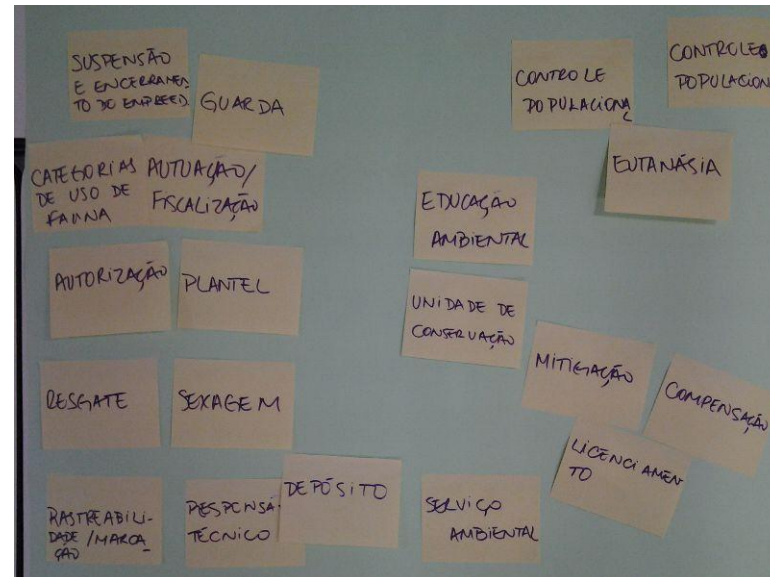 SUSPENSÃO
E ENCERRAMEN
TO DO EMPREED.
GUARDA
CATEGORIAS
DE USO DE
FAUNA
AUTUAÇÃO/
FISCALIZAÇÃO
AUTORIZAÇÃO
PLANTEL
RESGATE
SEXAGEM
RASTREABILI-
DADE/MARCA
ÇÃO
RESPONSÁ
TÉCNICO
DEPÓSITO
CONTROLE
POPULACIONA
L
CONTROLE
POPULACION
EUTANÁSIA
EDUCAÇÃO
AMBIENTAL
UNIDADE DE
CONSERVAÇÃO
MITIGAÇÃO
COMPENSAÇÃO
LICENCIAMEN
TO
SERVIÇO
AMBIENTAL